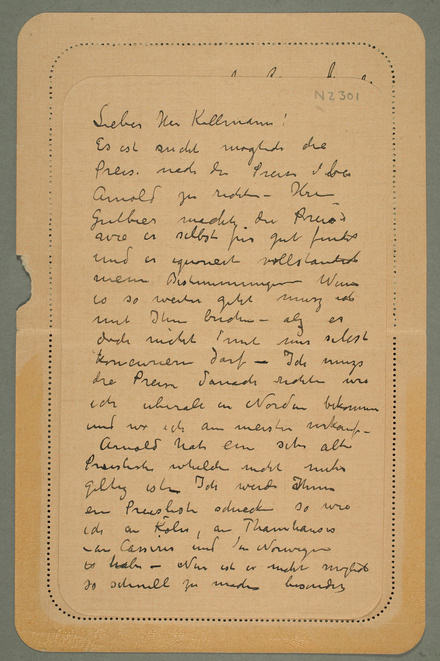 N 2301
Lieber Herr Kollmann!
Es ist nicht möglich die
Preis. nach den Preisen
Arnold zu richten – Herr
Gurlitt macht die Preis
wie er selbst für gut findet
und er ignoriert vollstandich
meine Bestimmungen Wenn
es so weiter geht muss ich
mit Ihm brechen – als er
doch nicht mit mir selbst
konkurriren darf – Ich muss
die Preise danach richten wie
ich uberale in Norden bekommen
und wo ich am meisten verkauf –
Arnold hat ein sehr alte
Preisliste whelche nicht mehr
giltig ist. Ich werde Ihnen
ein Preisliste schicken so wie
ich an Köln, an Thannhauser
– an Cassirer und in Norwegen
habe – Nun ist es nicht möglich
so schnell zu machen besonders